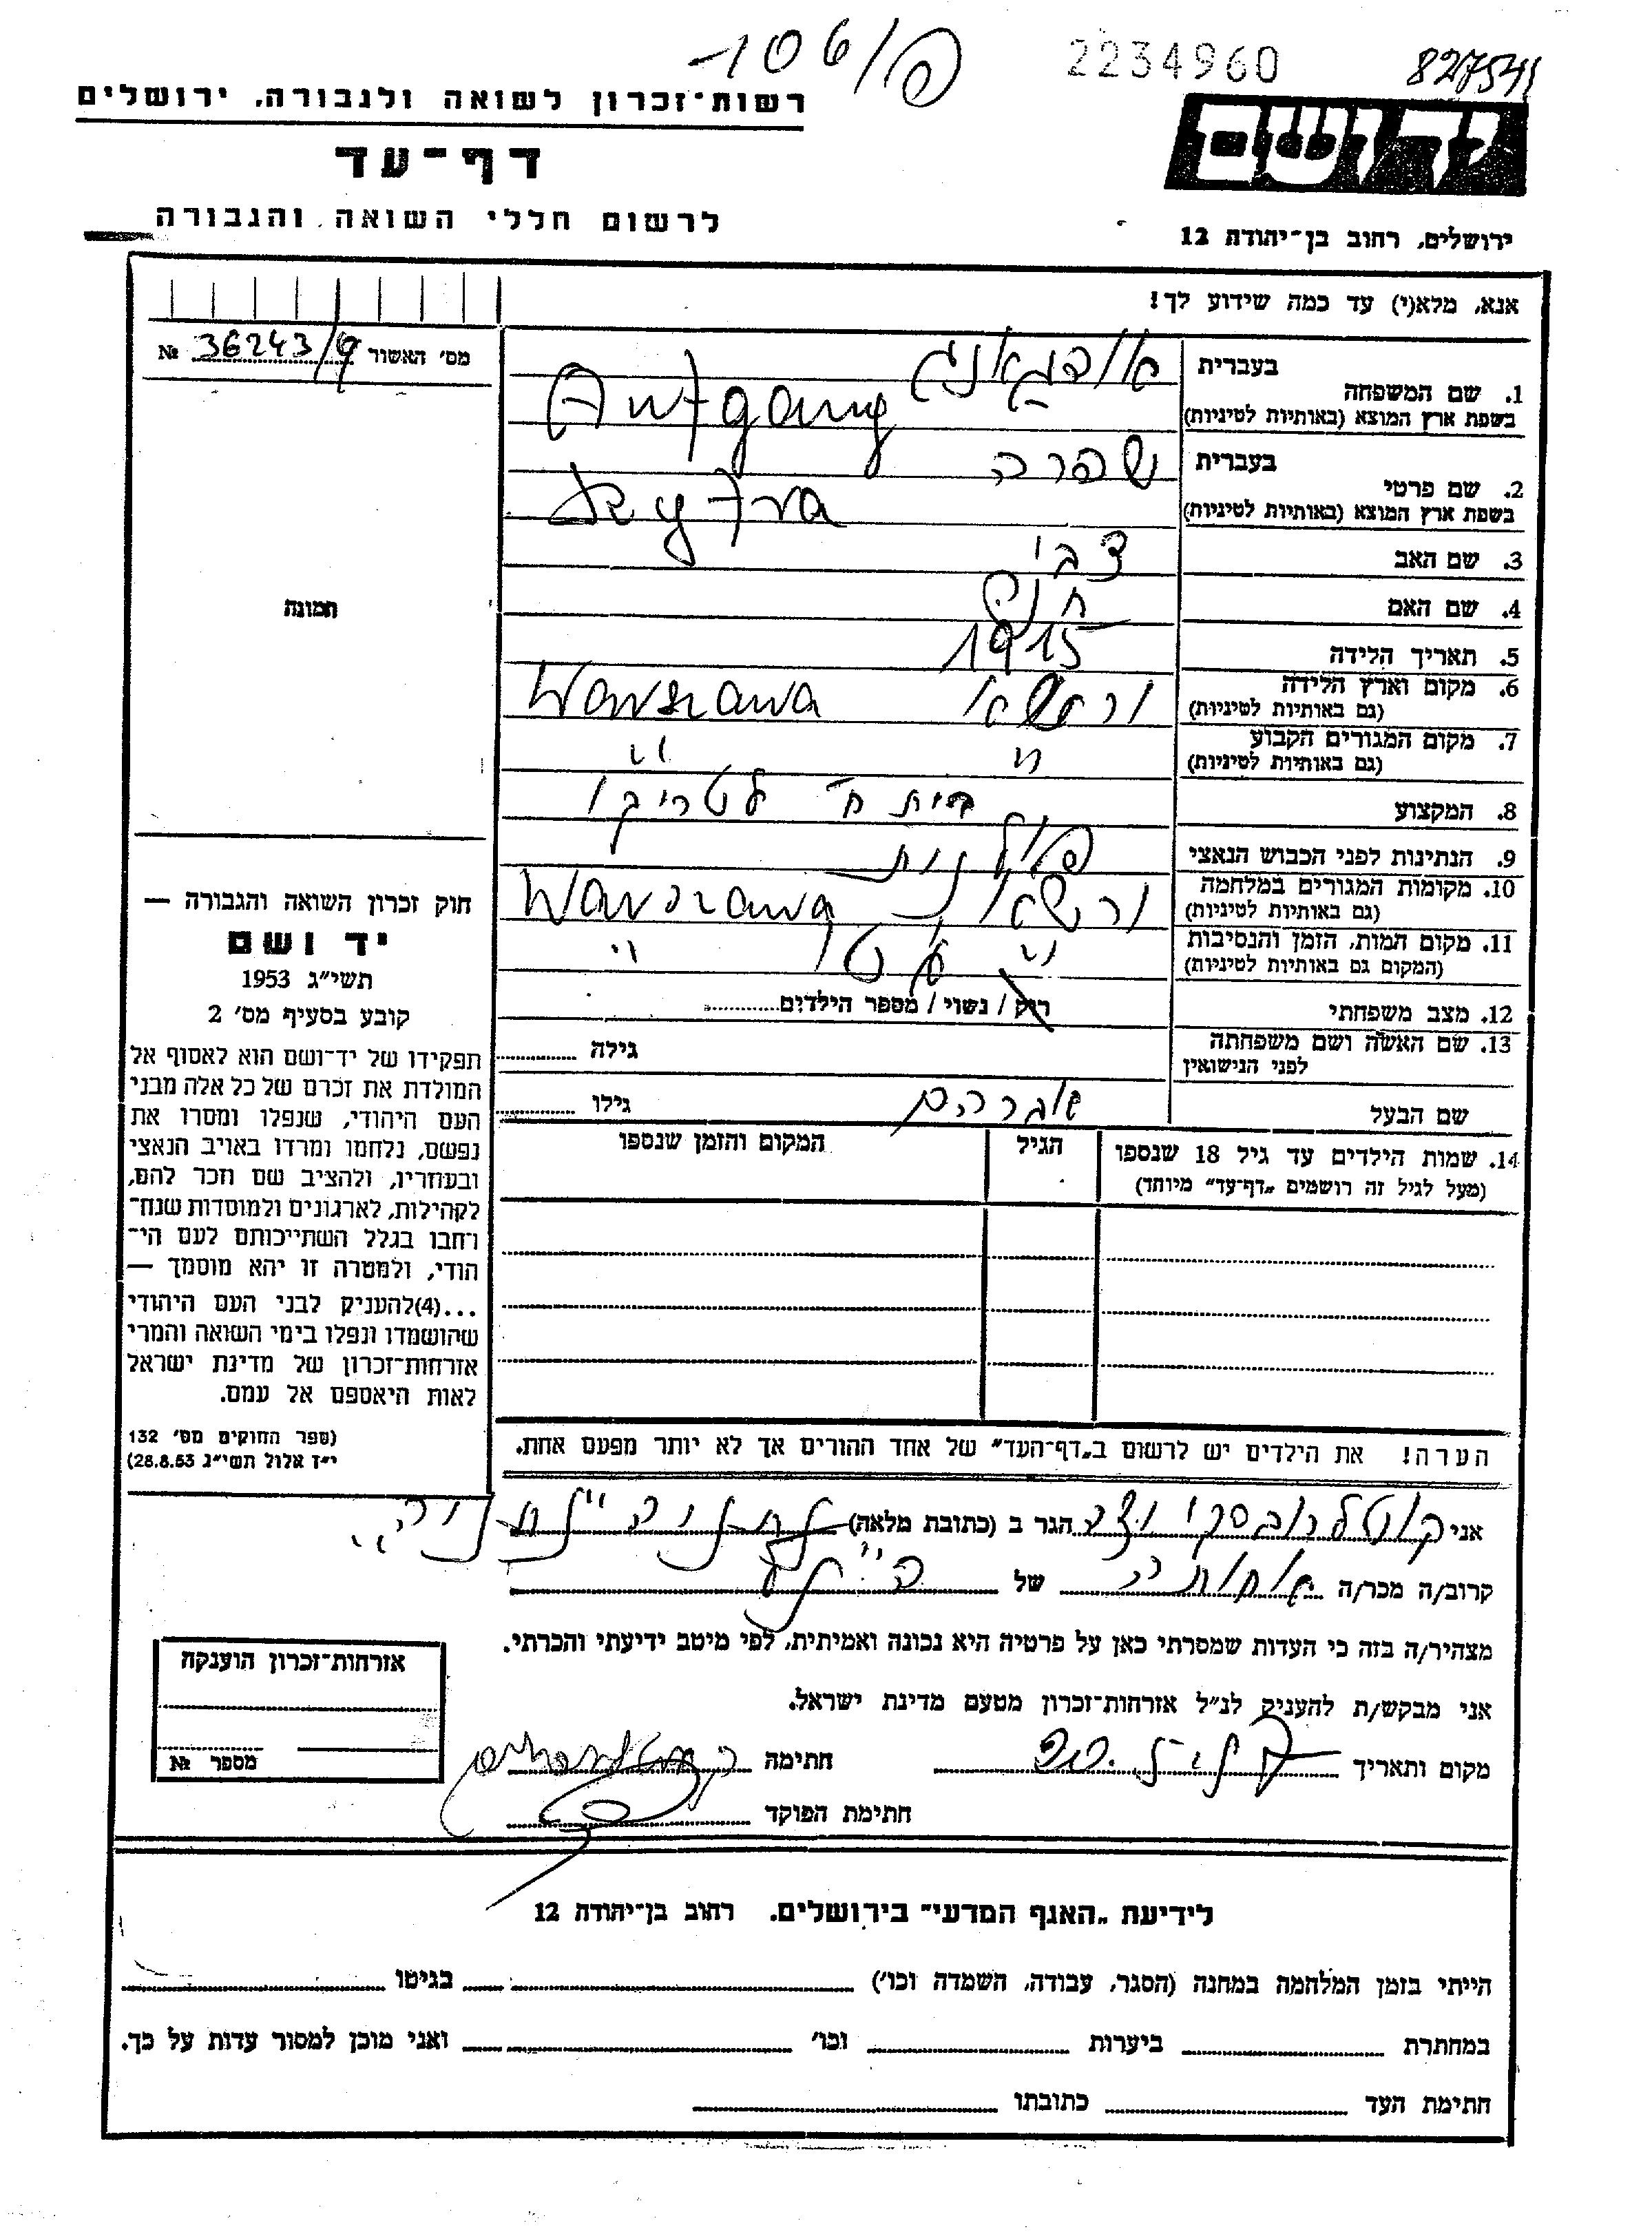 106/פ
2234960
827541
רשות־זכרון לשואה ולגבורה, ירושלים
דף־עד
לרשום חללי השואה והגבורה
ידושם
ירושלים, רחוב בן־יהודה 12
אנא, מלא(י) עד כמה שידוע לך!
מס׳ האשור 36243/9 №
1. שם המשפחה
בעברית אופגאנג
בשפת ארץ המוצא (באותיות לטיניות) Aufgang
2. שם פרטי
בעברית שפרה
בשפת ארץ המוצא (באותיות לטיניות) Szyfra
3. שם האב צבי
4. שם האם
5. תאריך הלידה 1915
6. מקום וארץ הלידה
(גם באותיות לטיניות) ורשא Warszawa
7. מקום המגורים הקבוע
(גם באותיות לטיניות) " "
8. המקצוע בית ח״
9. הנתינות לפני הכבוש הנאצי פולנית
10. מקומות המגורים במלחמה
(גם באותיות לטיניות) ורשא Warszawa
11. מקום המות, הזמן והנסיבות
(המקום גם באותיות לטיניות) " גטו "
12. מצב משפחתי רוק / נשוי / מספר הילדים
13. שם האשה ושם משפחתה
לפני הנישואין גילה
שם הבעל אברהם גילו
14. שמות הילדים עד גיל 18 שנספו
(מעל לגיל זה רושמים „דף־עד״ מיוחד)
הגיל
המקום והזמן שנספו
הערה! את הילדים יש לרשום ב„דף־העד״ של אחד ההורים אך לא יותר מפעם אחת.
תמונה
חוק זכרון השואה והגבורה —
יד ושם
תשי״ג 1953
קובע בסעיף מס׳ 2
תפקידו של יד־ושם הוא לאסוף אל
המולדת את זכרם של כל אלה מבני
העם היהודי, שנפלו ומסרו את
נפשם, נלחמו ומרדו באויב הנאצי
ובעוזריו, ולהציב שם וזכר להם,
לקהילות, לארגונים ולמוסדות שנח־
רחבו בגלל השתייכותם לעם הי־
הודי, ולמטרה זו יהא מוסמך —
...(4)להעניק לבני העם היהודי
שהושמדו ונפלו בימי השואה והמרי
אזרחות־זכרון של מדינת ישראל
לאות היאספם אל עמם.
(ספר החוקים מס׳ 132
י״ז אלול תשי״ג 28.8.53)
אני הגר ב (כתובת מלאה)
קרוב/ה מכר/ה אחותי של
מצהיר/ה בזה כי העדות שמסרתי כאן על פרטיה היא נכונה ואמיתית, לפי מיטב ידיעתי והכרתי.
אני מבקש/ת להעניק לנ״ל אזרחות־זכרון מטעם מדינת ישראל.
מקום ותאריך חתימה
חתימת הפוקד
אזרחות־זכרון הוענקה
מספר №
לידיעת „האגף המדעי״ בירושלים, רחוב בן־יהודה 12
הייתי בזמן המלחמה במחנה (הסגר, עבודה, השמדה וכו׳) בגיטו
במחתרת ביערות וכו׳ ואני מוכן למסור עדות על כך.
חתימת העד כתובתו